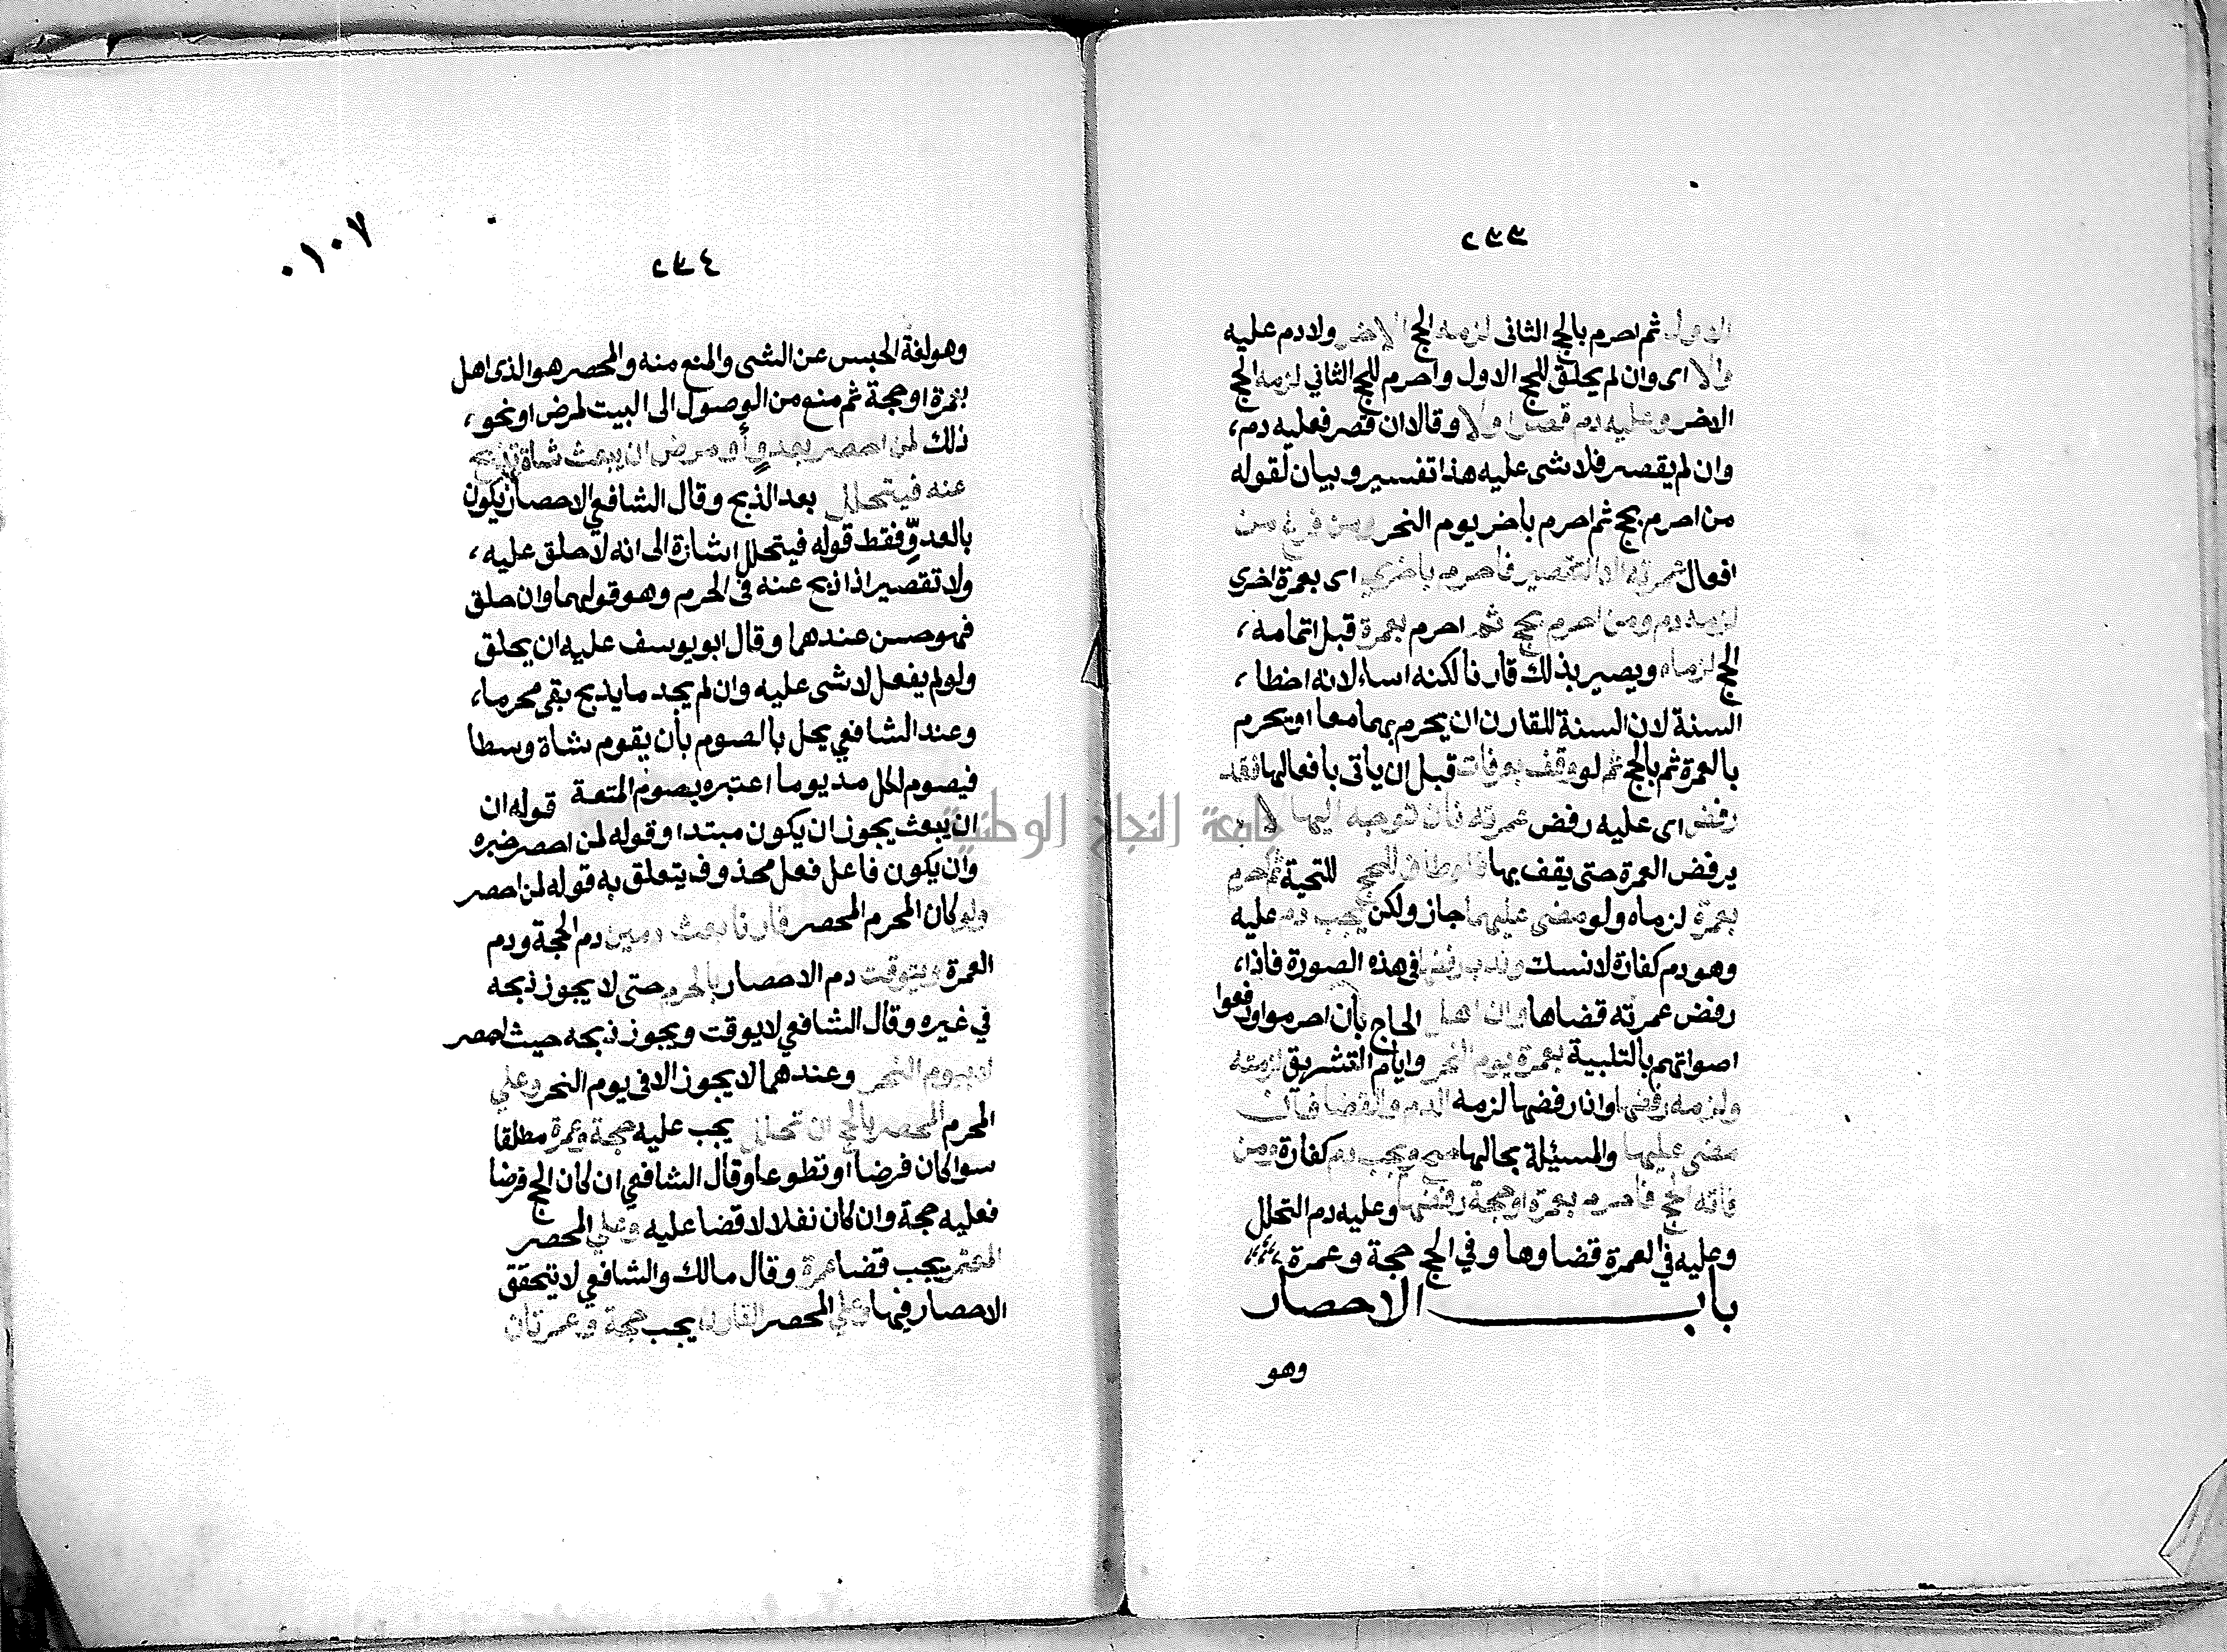 ٢٣٣
الاول ثم احرم بالحج الثانى لزمه الحج الاخر ولا دم عليه
والا اى وان لم يحلق للحج الاول واحرم للحج الثاني لزمه الحج
الاخر وعليه دم قصر اولا وقالا ان قصر فعليه دم،
وان لم يقصر فلا شى عليه هذا تفسير وبيان لقوله
من احرم بحج ثم احرم باخر يوم النحر ومن فرغ من
افعال عمرته الا التقصير فاحرم باخرى اى بعمرة اخرى
لزمه دم ومن احرم بحج ثم احرم بعمرة قبل اتمامه،
الحج لزماه ويصير بذلك قارنا لكنه اساء لانه اخطا،
السنة لان السنة للقارن ان يحرم بهما معا او يحرم
بالعمرة ثم بالحج ثم لو وقف بعرفات قبل ان ياتى بافعالها فقد
رفض اى عليه رفض عمرته فان توجه اليها لا
يرفض العمرة حتى يقف بها فلو طاف للحج للتحية ثم احرم
بعمرة لزماه ولو مضى عليهما جاز ولكن يجب دم عليه
وهو دم كفارة لا نسك وندب رفضها فى هذه الصورة فاذا،
رفض عمرته قضاها وان اهل الحاج بأن احرموا ورفعوا
اصواتهم بالتلبية بعمرة يوم النحر وايام التشريق لزمته
ولزمه رفضها واذا رفضها لزمه الدم والقضا فان
مضى عليها والمسئلة بحالها صح ويجب دم كفارة ومن
فاته الحج فاحرم بعمرة او حجة رفضها وعليه دم التحلل
وعليه في العمرة قضاوها وفي الحج حجة وعمرة
باب الاحصار
وهو
٠١٠٧
٢٣٤
وهو لغة الحبس عن الشى والمنع منه والمحصر هو الذى اهل
بعمرة او حجة ثم منع من الوصول الى البيت لمرض او نحو،
ذلك لمن احصر بعدوٍ أو مرض ان يبعث شاة تذبح
عنه فيتحلل بعد الذبح وقال الشافعي لا احصار يكون
بالعدوِّ فقط قوله فيتحلل اشارة الى انه لا حلق عليه،
ولا تقصير اذا ذبح عنه فى الحرم وهو قولهما وان حلق
فهو حسن عندهما وقال ابو يوسف عليه ان يحلق
ولو لم يفعل لا شى عليه وان لم يجد ما يذبح بقى محرما،
وعند الشافعي يحل بالصوم بأن يقوم شاة وسطا
فيصوم لكل مد يوما اعتبره بصوم المتعة قوله ان
ان يبعث يجوز ان يكون مبتدا وقوله لمن احصر خبره
وان يكون فاعل فعل محذوف يتعلق به قوله لمن احصر
ولو كان المحرم المحصر قارنا بعث دمين دم الحجة ودم
العمرة ويتوقت دم الاحصار بالحرم حتى لا يجوز ذبحه
في غيره وقال الشافعي لا يوقت ويجوز ذبحه حيث احصر
لا بيوم النحر وعندهما لا يجوز الا فى يوم النحر وعلي
المحرم المحصر بالحج ان تحلل يجب عليه حجة وعمرة مطلقا
سوا كان فرضا او تطوعا وقال الشافعي ان كان الحج فرضا
فعليه حجة وان كان نفلا لا قضا عليه وعلي المحصر
المعتمر يجب قضا عمرة وقال مالك والشافعي لا يتحقق
الاحصار فيها وعلي المحصر القارن يجب حجة وعمرتان
جامعة النجاح الوطنية